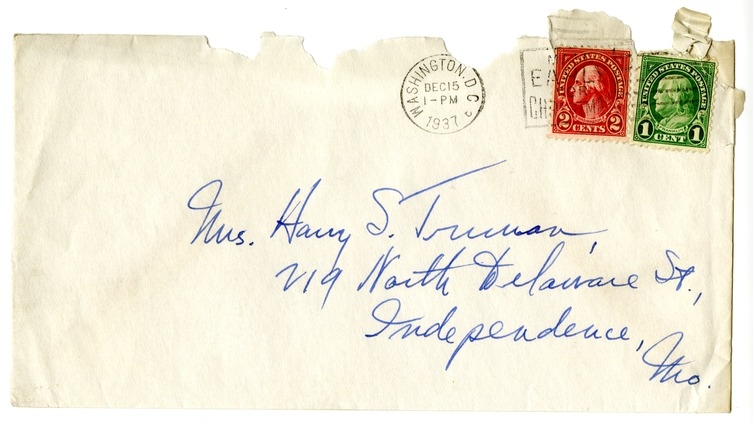 WASHINGTON. D.C.
DEC 15
1-PM
1937
UNITED STATES POSTAGE
2 CENTS 2
UNITED STATES POSTAGE
FRANKLIN
1 CENT 1
Mrs. Harry S. Truman,
219 North Delaware St.,
Independence,
Mo.